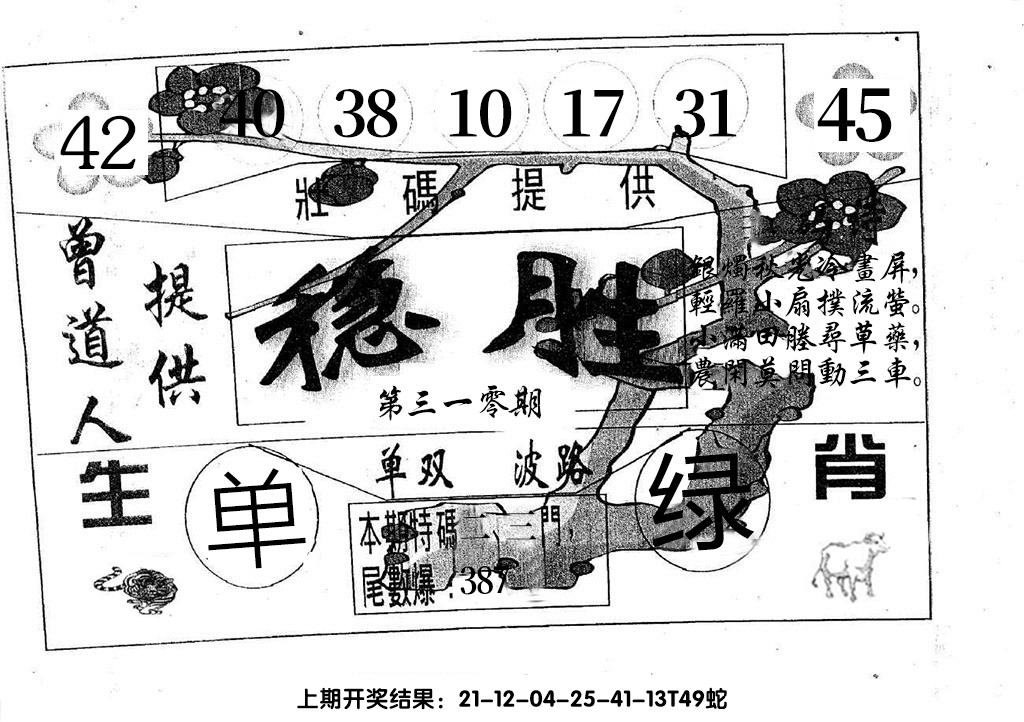 42 40 38 10 17 31 45
壯碼提供
曾道人
提供
稳胜
第三一零期
銀燭秋光冷畫屏,
輕羅小扇撲流螢。
小滿田塍尋草藥,
農閑莫問動三車。
单双 波路
生肖
单
绿
本期特碼二、三門,
尾數爆:387
上期开奖结果：21-12-04-25-41-13T49蛇